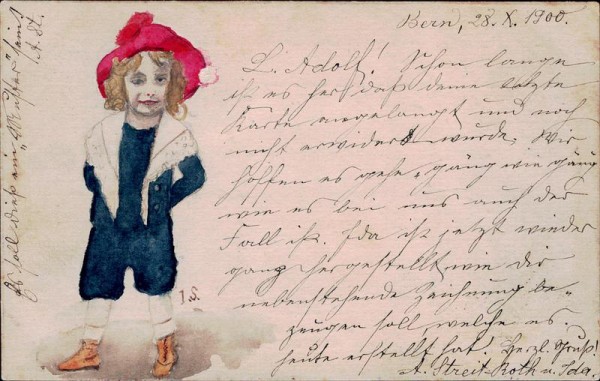 Bern, 28. X. 1900.
L. Adolf! Schon lange
ist es her daß deine letzte
Karte angelangt und noch
nicht erwidert wurde. Wir
hoffen es gehe gäng wie gäng
wie es bei uns auch der
Fall ist. Ida ist jetzt wieder
ganz hergestellt wie die
nebenstehende Zeichnung be-
zeugen soll, welche es
heute erstellt hat. Herzl. Gruß!
A. Streit-Roth u. Ida.
Es soll dieß ein "Mutzer" sein!
A. St.